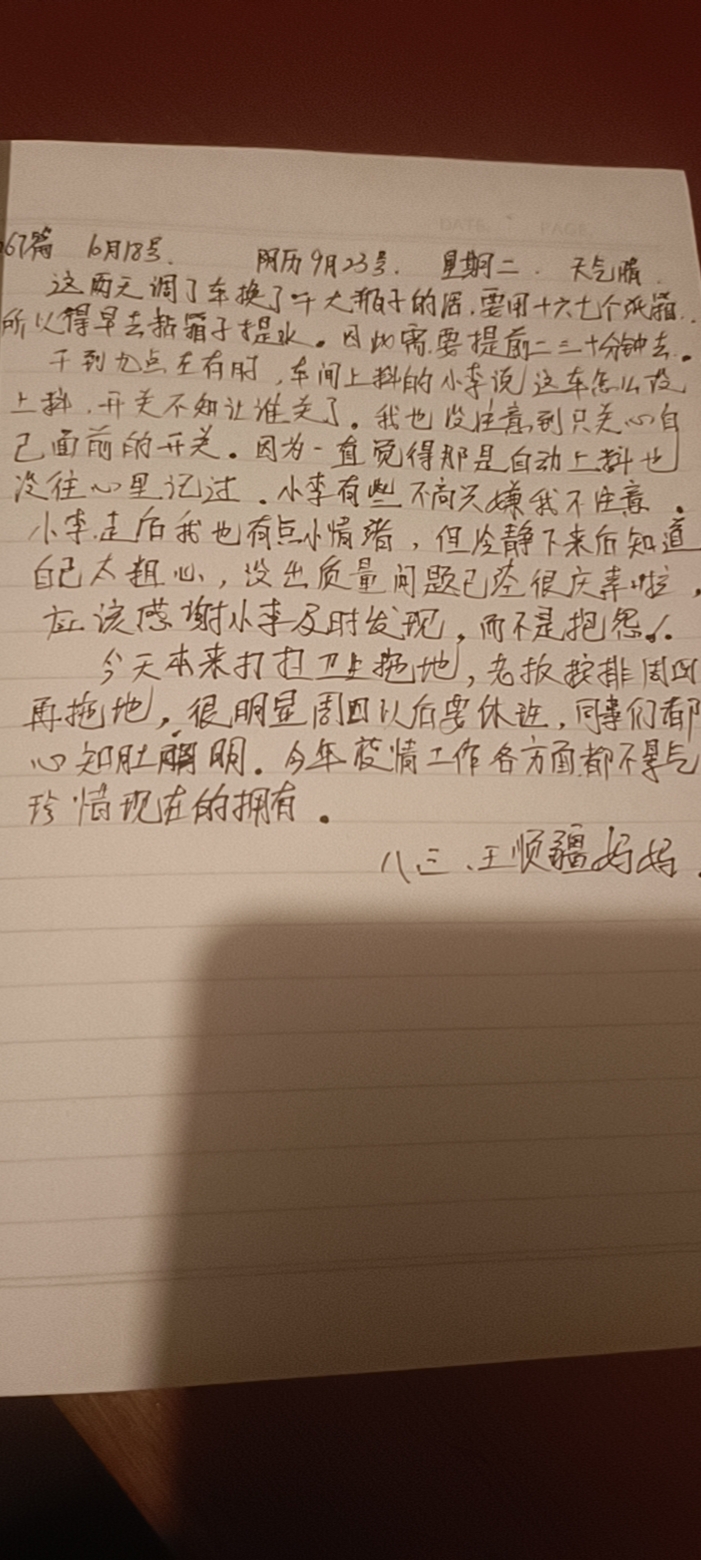 DATE PAGE
67篇 6月18号. 阴历9月23号. 星期二. 天气晴.
这两天调了车换了个大瓶子的活,要用十六七个纸箱.
所以得早去粘箱子提水。因此需要提前二三十分钟去。
干到九点左右时,车间上料的小李说这车怎么没
上料,开关不知让谁关了。我也没注意到只关心自
己面前的开关。因为一直觉得那是自动上料也
没往心里记过.小李有些不高兴嫌我不注意.
小李走后我也有点小情绪,但冷静下来后知道
自己太粗心,没出质量问题已经很庆幸啦,
应该感谢小李及时发现,而不是抱怨.
今天本来打扫卫生拖地,老板按排周四
再拖地,很明显周四以后要休班,同事们都
心知肚明.今年疫情工作各方面都不景气
珍惜现在的拥有.
八三.王顺疆妈妈.